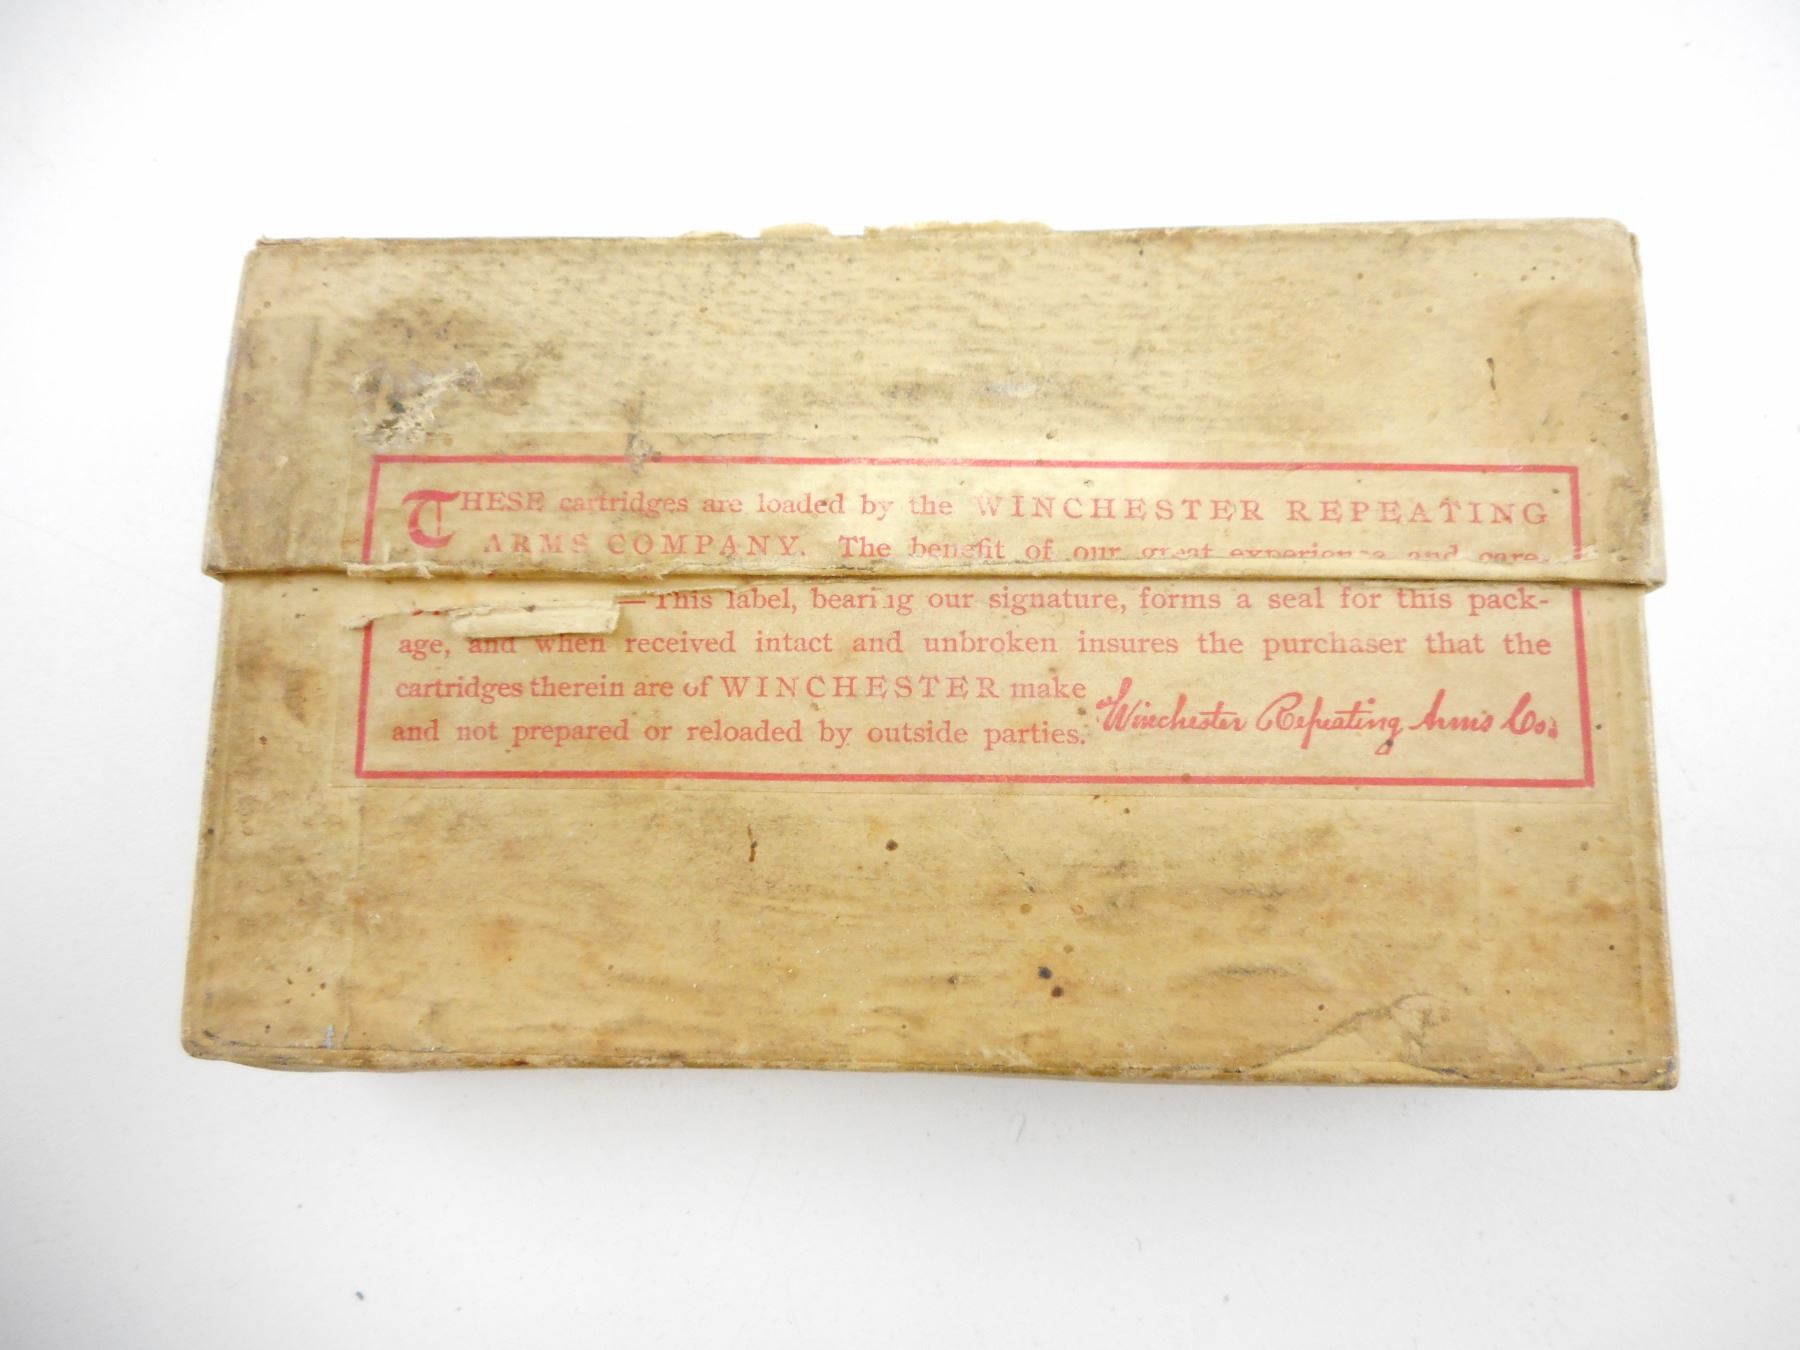 THESE cartridges are loaded by the WINCHESTER REPEATING
ARMS COMPANY. The benefit of our great experience and care,
—This label, bearing our signature, forms a seal for this pack-
age, and when received intact and unbroken insures the purchaser that the
cartridges therein are of WINCHESTER make
and not prepared or reloaded by outside parties.
Winchester Repeating Arms Co.